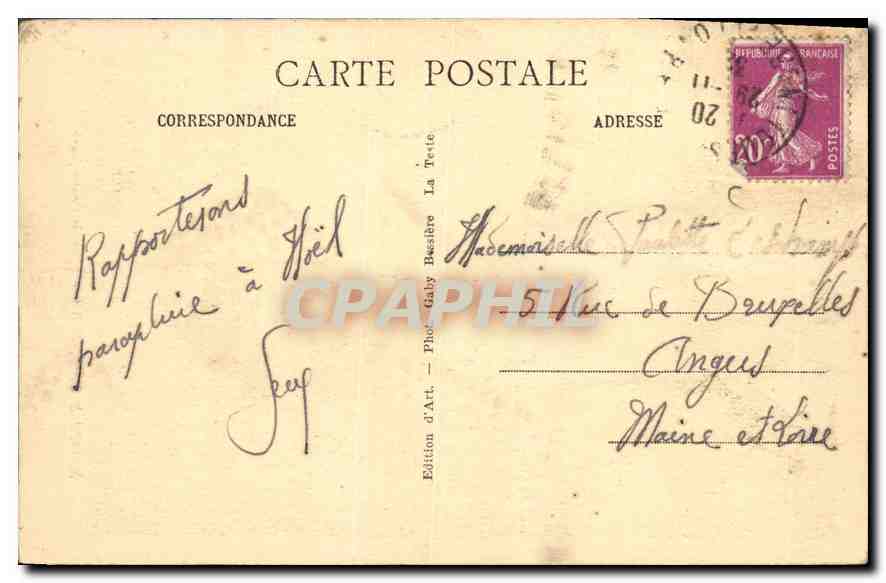 CARTE POSTALE
CORRESPONDANCE
ADRESSE
REPUBLIQUE FRANÇAISE
20c
POSTES
29 - 11
20
Rapporterons
parapluie à Noël
Mademoiselle Paulette
5 Rue de Bruxelles
Angers
Maine et Loire
Edition d'Art. — Phot. Gaby Bessière La Teste
CPAPHIL